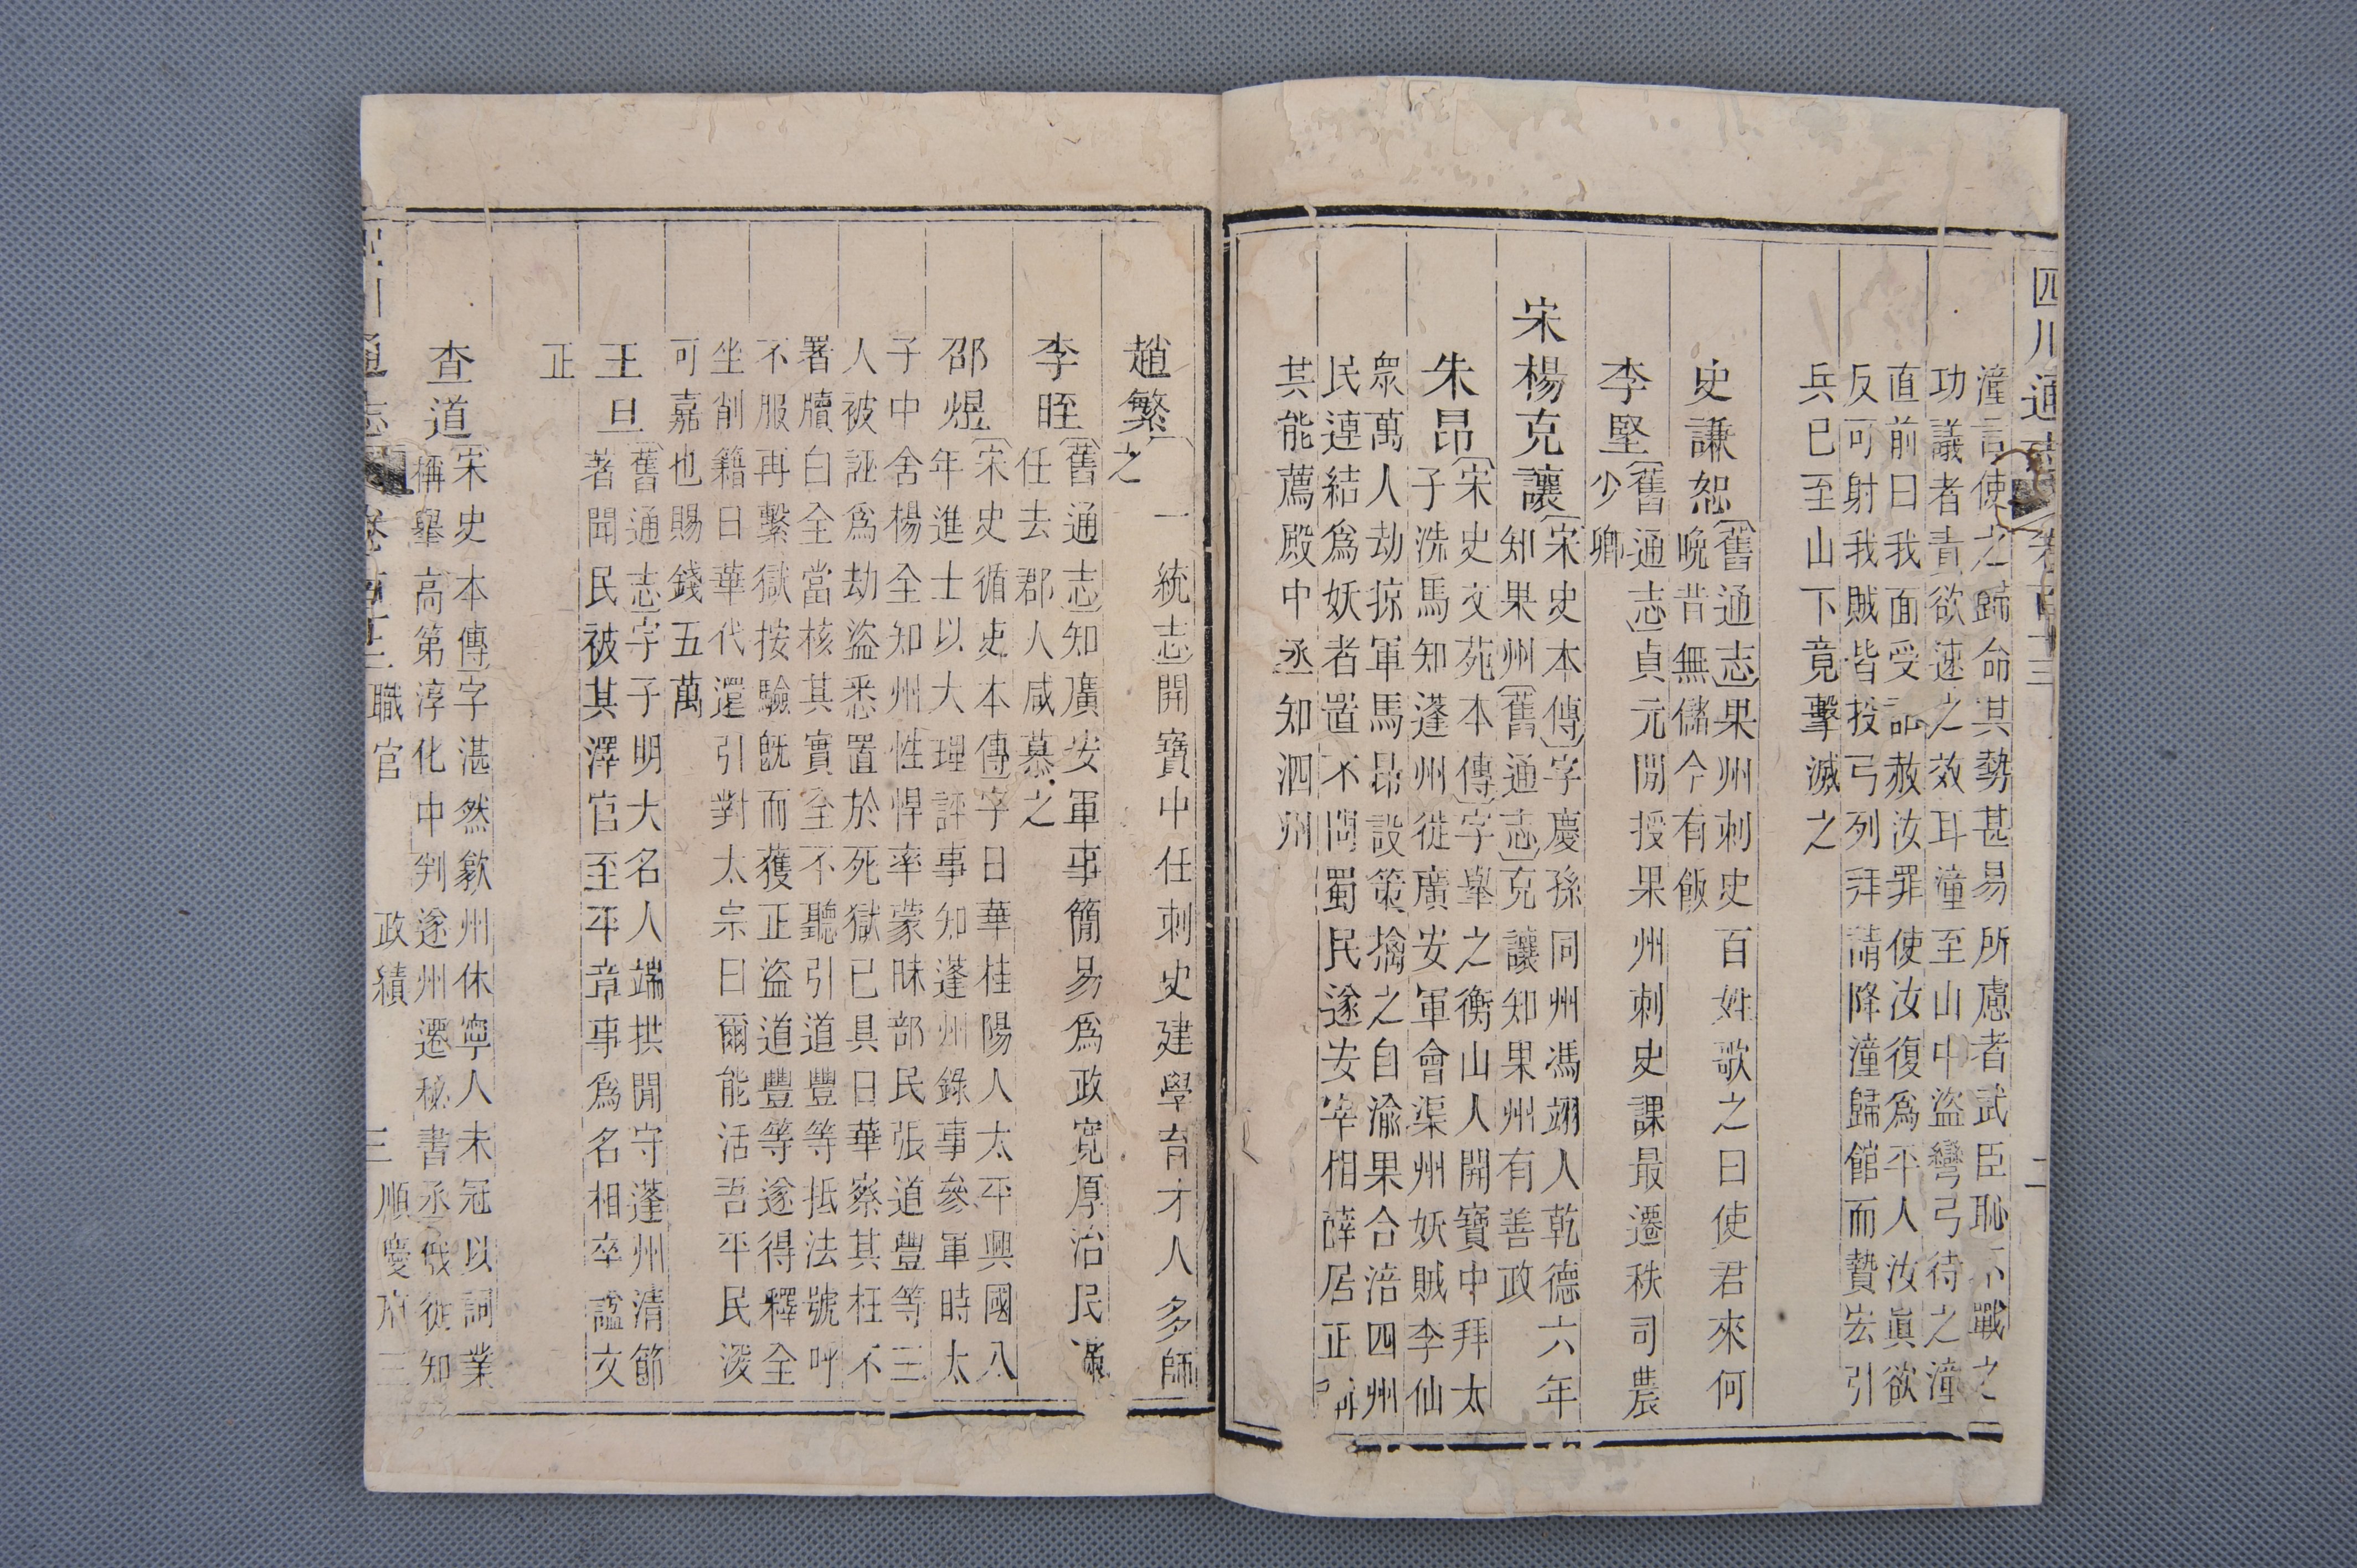 四川通志 卷一百十三 二
潼言使之歸命其勢甚易所慮者武臣恥不戰之
功議者責欲速之效耳潼至山中盜彎弓待之潼
直前曰我面受詔赦汝罪使汝復爲平人汝眞欲
反可射我賊皆投弓列拜請降潼歸館而贄宏引
兵已至山下竟擊滅之
史謙恕〔舊通志〕果州刺史百姓歌之曰使君來何
晩昔無儲今有飯
李堅〔舊通志〕貞元閒授果州刺史課最遷秩司農
少卿
宋楊克讓〔宋史本傳〕字慶孫同州馮翊人乾德六年
知果州〔舊通志〕克讓知果州有善政
朱昂〔宋史文苑本傳〕字舉之衡山人開寶中拜太
子洗馬知蓬州徙廣安軍會渠州妖賊李仙
衆萬人劫掠軍馬昂設策擒之自渝果合涪四州
民連結爲妖者置不問蜀民遂安宰相薛居正稱
其能薦殿中丞知泗州
趙繁〔一統志〕開寶中任刺史建學育才人多師
之
李晊〔舊通志〕知廣安軍事簡易爲政寬厚治民
任去郡人咸慕之
邵煜〔宋史循吏本傳〕字日華桂陽人太平興國八
年進士以大理評事知蓬州錄事參軍時太
子中舍楊全知州性悍率蒙昧部民張道豐等三
人被誣爲劫盜悉置於死獄已具日華察其枉不
署牘白全當核其實全不聽引道豐等抵法號呼
不服再繫獄按驗旣而獲正盜道豐等遂得釋全
坐削籍日華代還引對太宗曰爾能活吾平民深
可嘉也賜錢五萬
王旦〔舊通志〕字子明大名人端拱閒守蓬州清節
著聞民被其澤官至平章事爲名相卒諡文
正
查道〔宋史本傳〕字湛然歙州休寧人未冠以詞業
稱舉高第淳化中判遂州遷秘書丞俄徙知
四川通志 卷一百十三 職官 政績 三 順慶府三